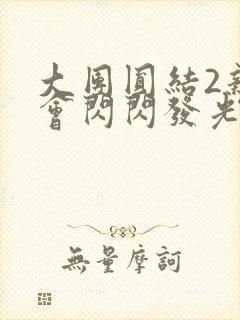 大團圓結2新
會閃閃發光
無量摩訶